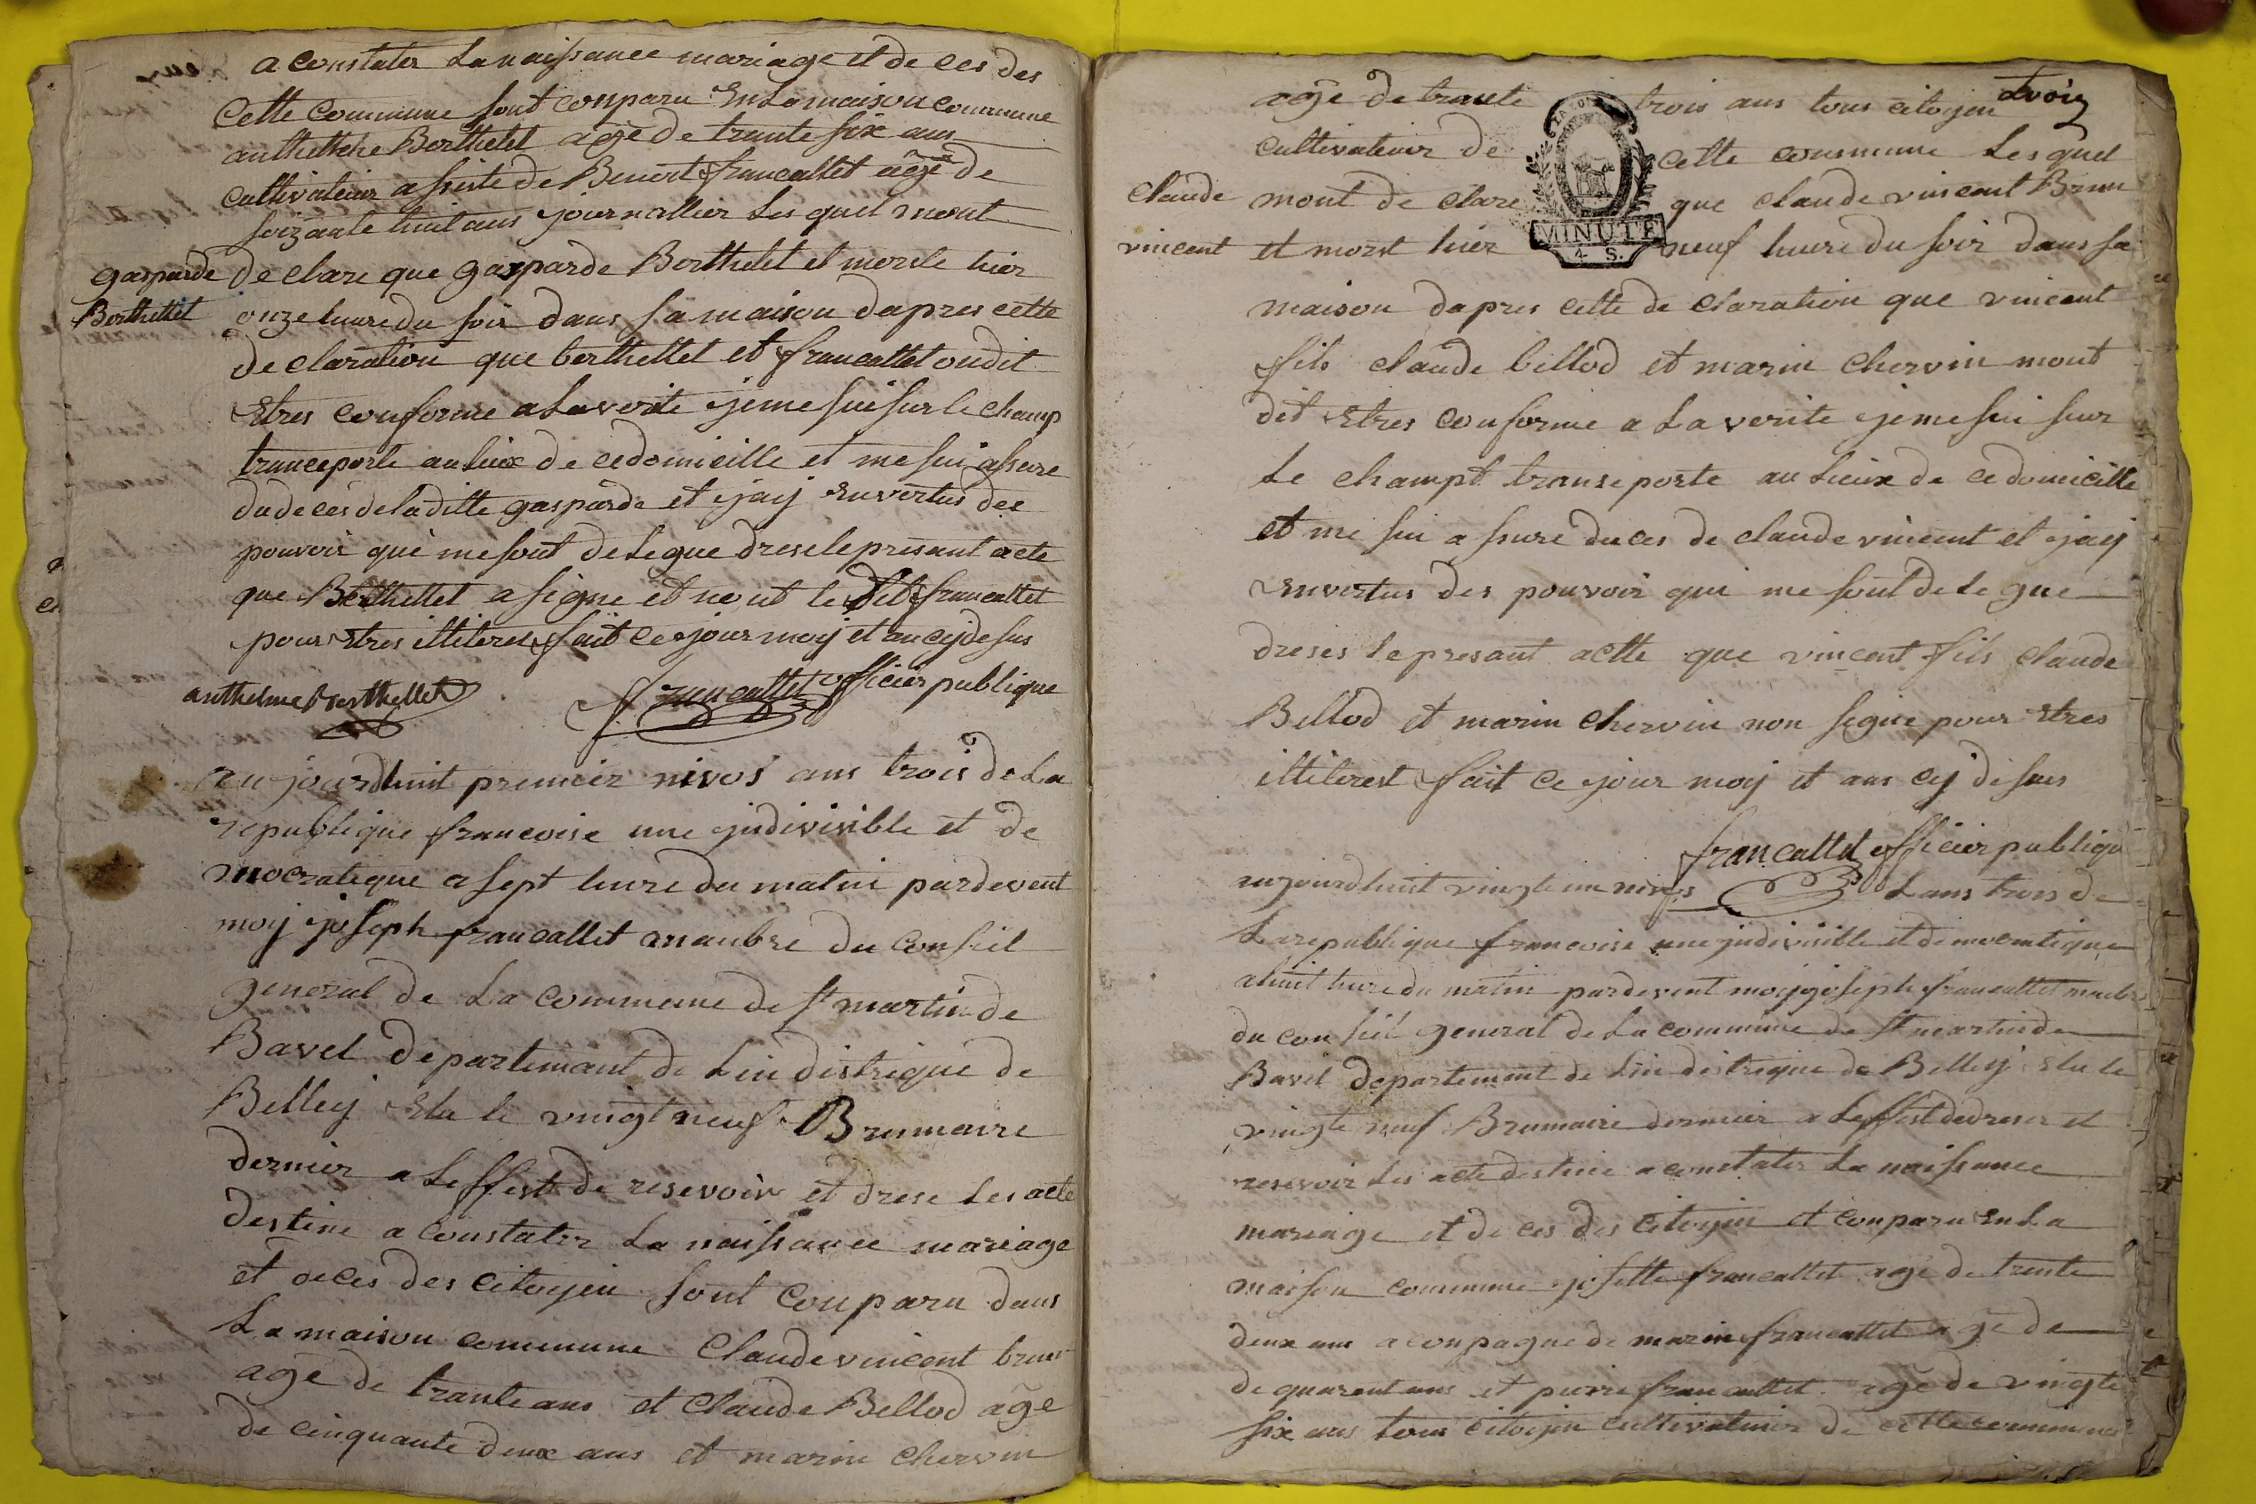 a constater La naissance mariage et de ces des
cette Commune sont conparu En La maison commune
Berthelet agé de trante six ans
cultivateur assiste de Benoit francallet agé de
soizante huit ans journallier Les quel mont
gasparde
Berthellet
de clare que gasparde Berthelet et morte hier
onze heure du soir dans sa maison dapres cette
de claration que berthellet et francallet ondit
Etres conforme a La verite je me sui sur le champ
transeporte au Lieux de ce domicille et me sui assure
du de ces de la ditte gasparde et jaij En vertus des
pouvoir qui me sont de Legue drese le presant acte
que Berthellet a signe et nont le dit francallet
pour Etres illiteret fait ce jour moij et an cij de sus
anthelme Berthellet
francallet officier publique
au jourdhuit premier nivos ans trois de La
republique francoise une jndivisible et de
mocratique a sept heure du matin pardevent
moij joseph francallet manbre du Conseil
general de La commune de st martin de
Bavel departemant de Lin distrique de
Belleij Elu le vingt neuf Brumaire
dernier a Leffest de resevoir et drese Les acte
destine a constater La naissance mariage
et deces des citoijen sont conparu dans
La maison commune Claude vincent brun
agé de trante ans et Claude Bellod agé
de cinquante deux ans et marin chervin
agé de trante trois ans tous citoijen
cultivateur de cette commune Les quel
claude
vincent
mont de clare que claude vincent Brun
et mort hier neuf heure du soir dans sa
MINUTE
4 S.
maison dapres cette de claration que vincent
fils claude bellod et marin chervin mont
dit Etres conforme a La verite je me sui sur
Le champt transeporte au Lieux de ce domicille
et me sui assure du ces de claude vincent et jaij
En vertus des pouvoir qui me sont de Legue
dreses le presant actte que vincent fils claude
Bellod et marin chervin non signe pour Etres
illiterest fait ce jour moij et ans cij desus
francallet officier publique
aujourdhuit vingte un nivos Lans trois de
La republique francoise une jndivisible et democratique
a huit heure du matin pardevent moij joseph francallet manbre
du conseil general de La commune de st martin de
Bavel departement de Lin distrique de Belleij Elu le
vingte neuf Brumaire dernier a Leffest de dreser et
resevoir Les acte destine a constater La naissance
mariage et de ces des citoijen et conparu En La
maison commune josette francallet agé de trente
deux ans aconpagne de marin francallet agé de
de quarent ans et pierre francallet agé de vingte
six ans tous citoijen cultivateur de cette commune